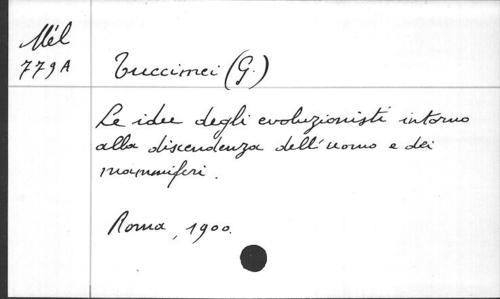 Mél
779A
Tuccimei (G.)
Le idee degli evoluzionisti intorno
alla discendenza dell'uomo e dei
mammiferi.
Roma, 1900.